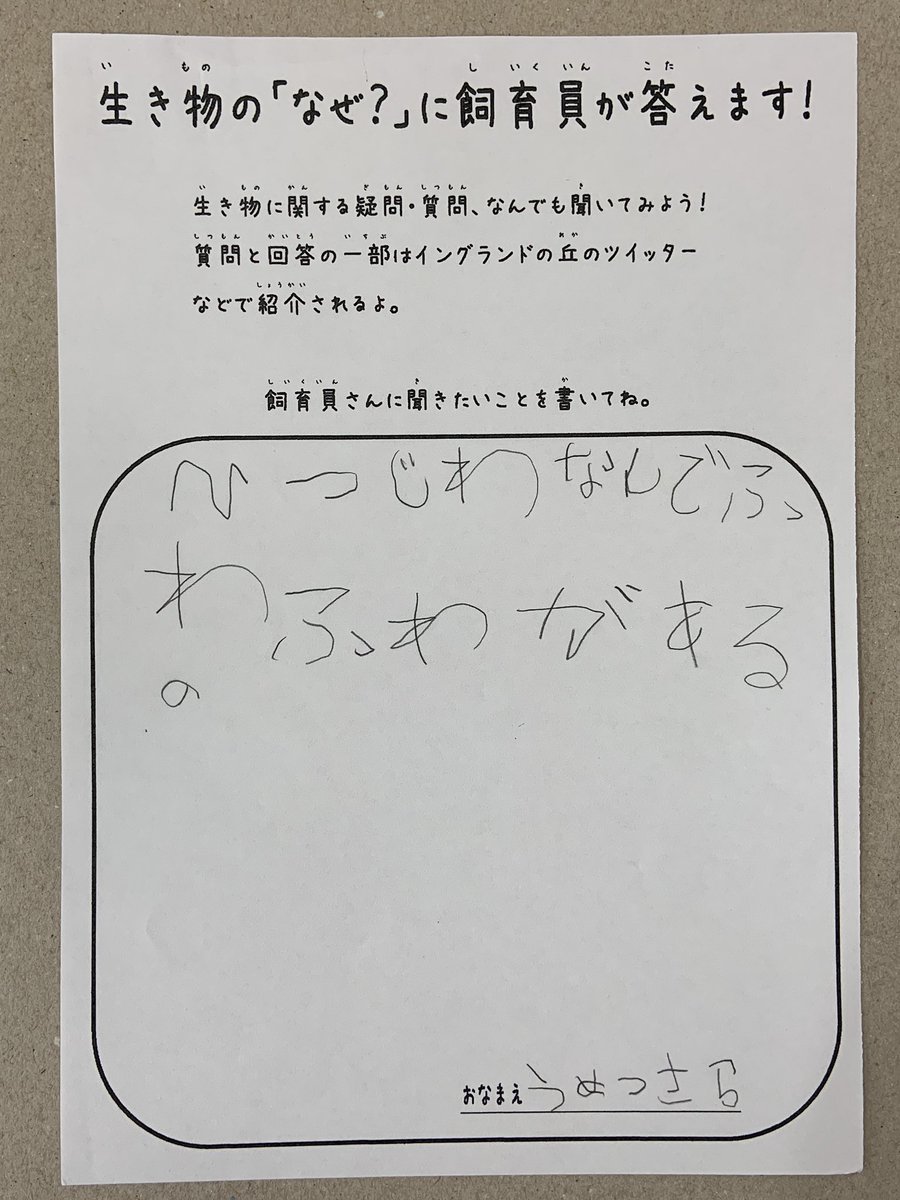 生き物の「なぜ?」に飼育員が答えます!
生き物に関する疑問・質問、なんでも聞いてみよう!
質問と回答の一部はイングランドの丘のツイッター
などで紹介されるよ。
飼育員さんに聞きたいことを書いてね。
ひつじわなんでふ
わふわがある
の
おなまえ うめつき